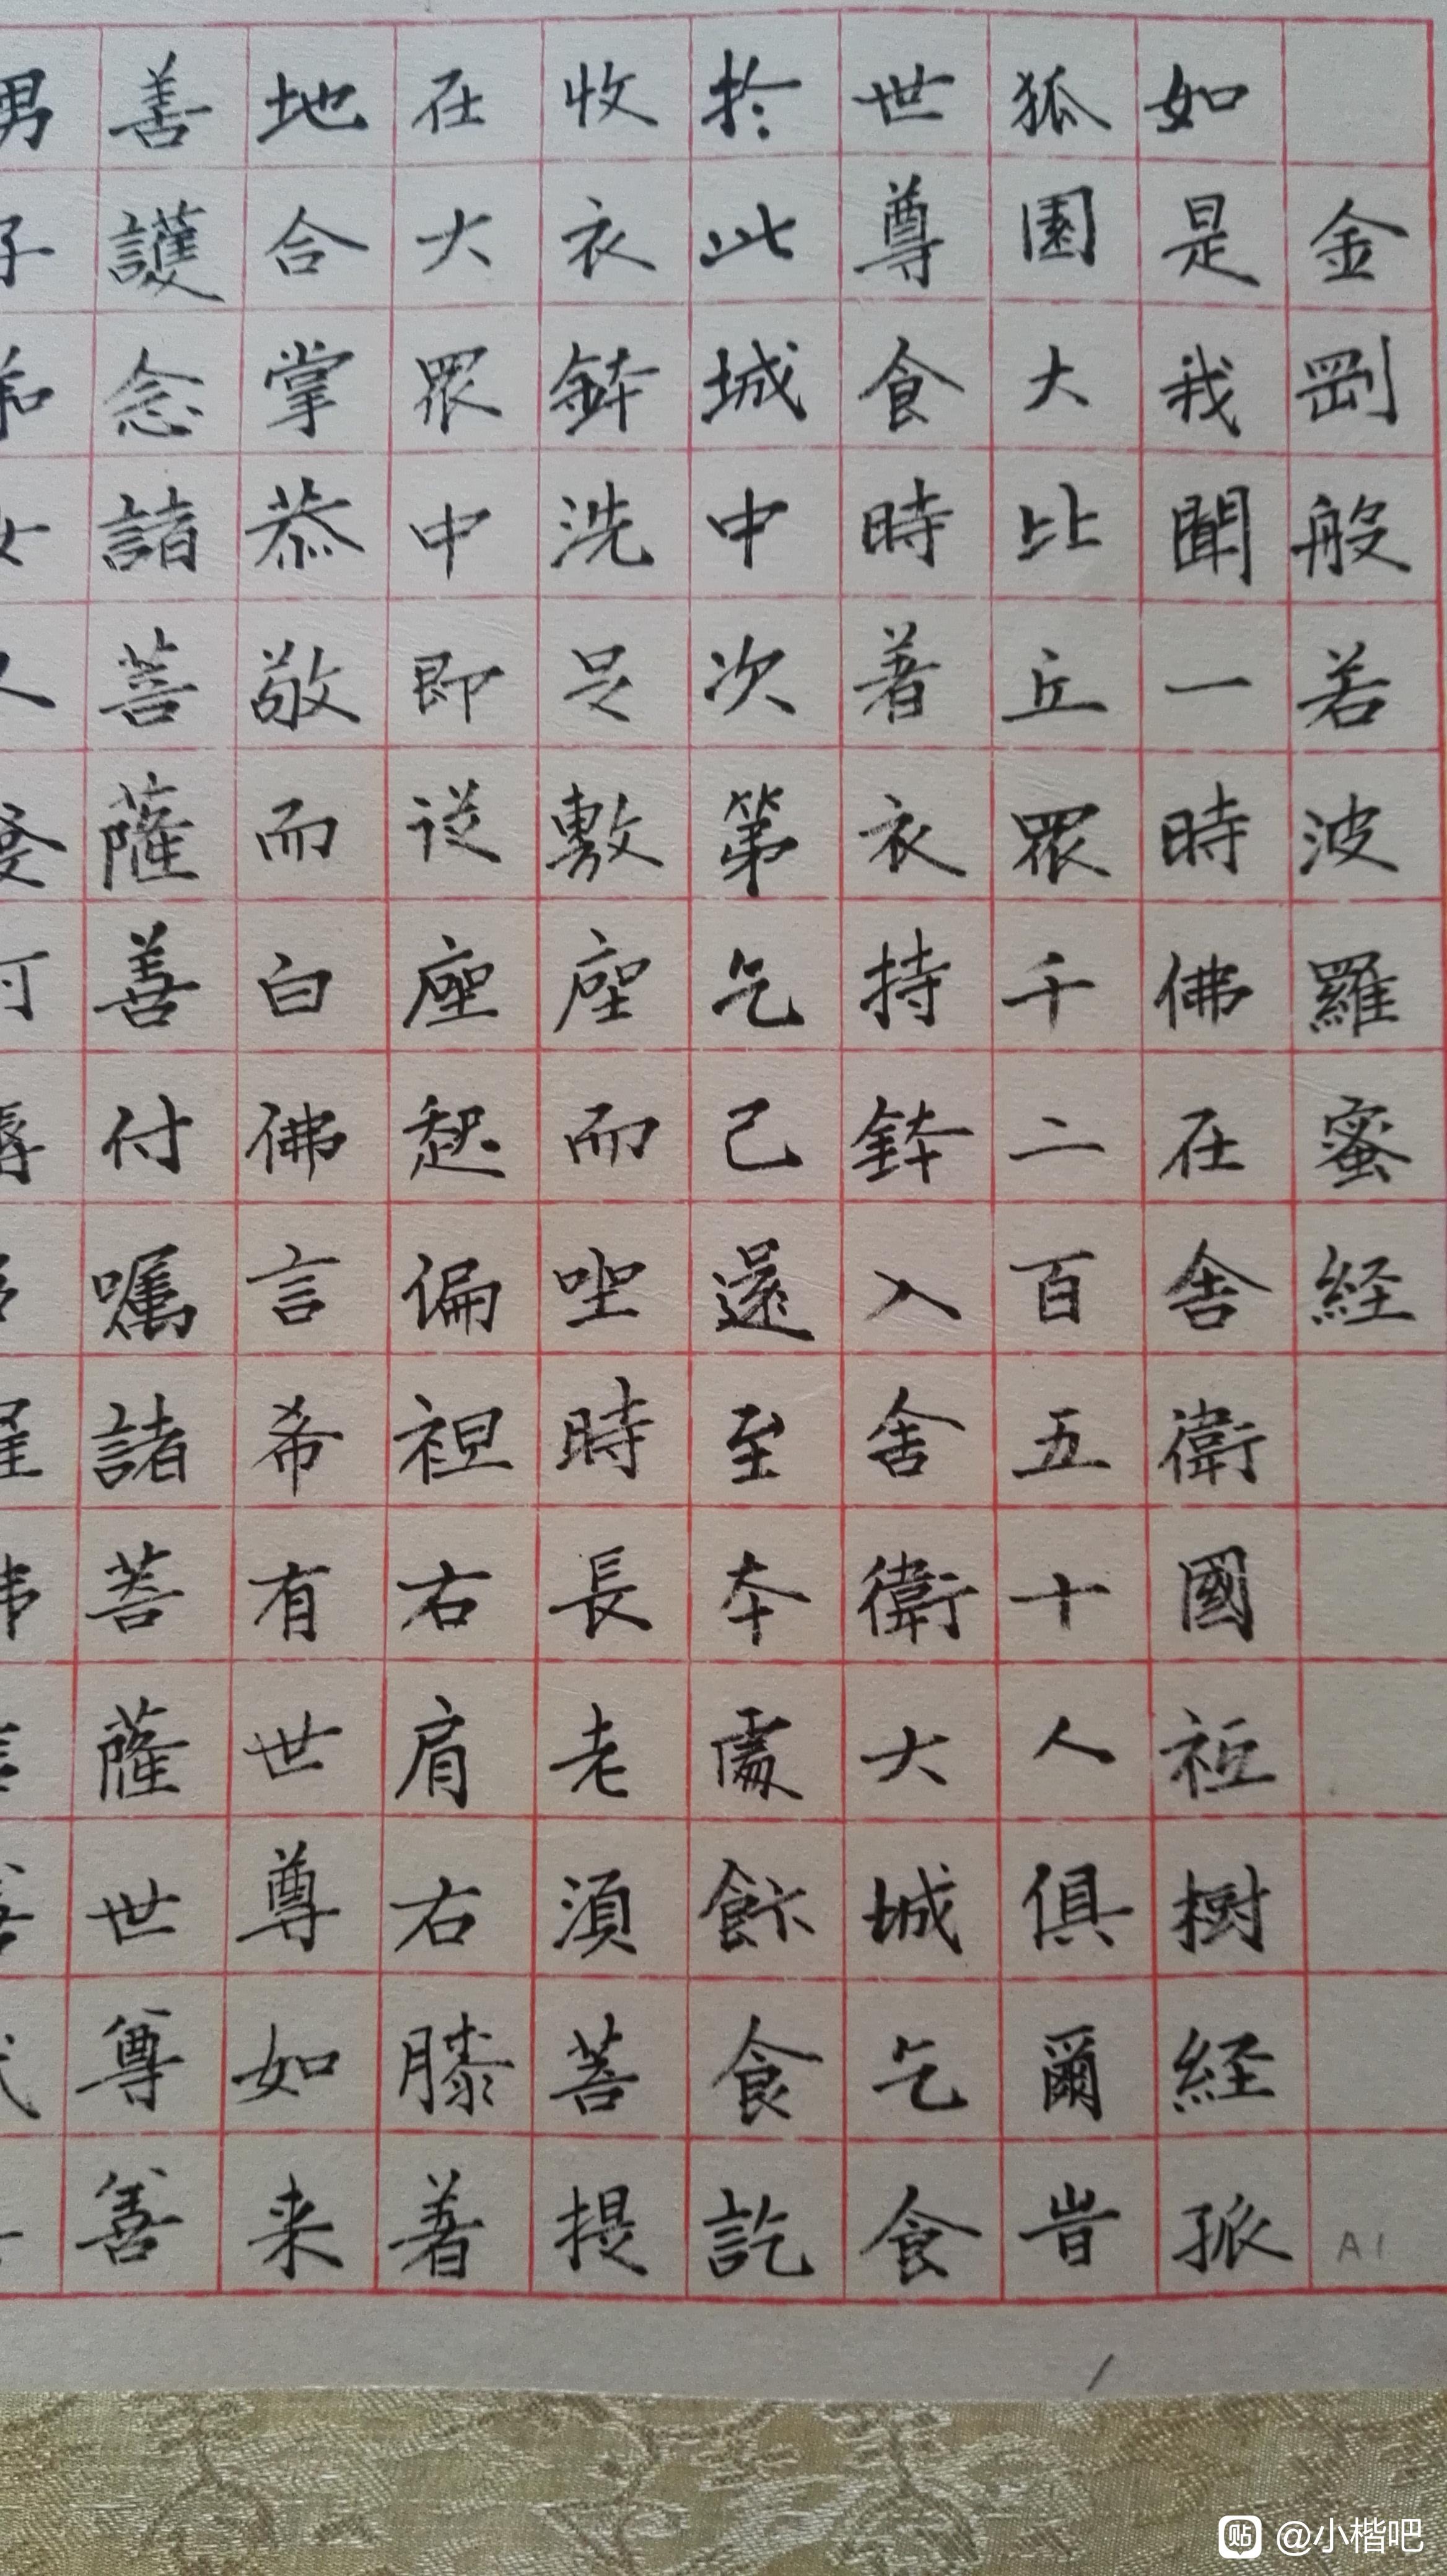 金剛般若波羅蜜経
如是我聞一時佛在舍衛國祇樹経孤
狐園大比丘眾千二百五十人俱爾旹
世尊食時著衣持鉢入舍衛大城乞食
扵此城中次第乞己還至本處飰食訖
收衣鉢洗足敷座而坐時長老須菩提
在大眾中即従座起偏袒右肩右膝著
地合掌恭敬而白佛言希有世尊如来
善護念諸菩薩善付嘱諸菩薩世尊善
A1
贴 @小楷吧